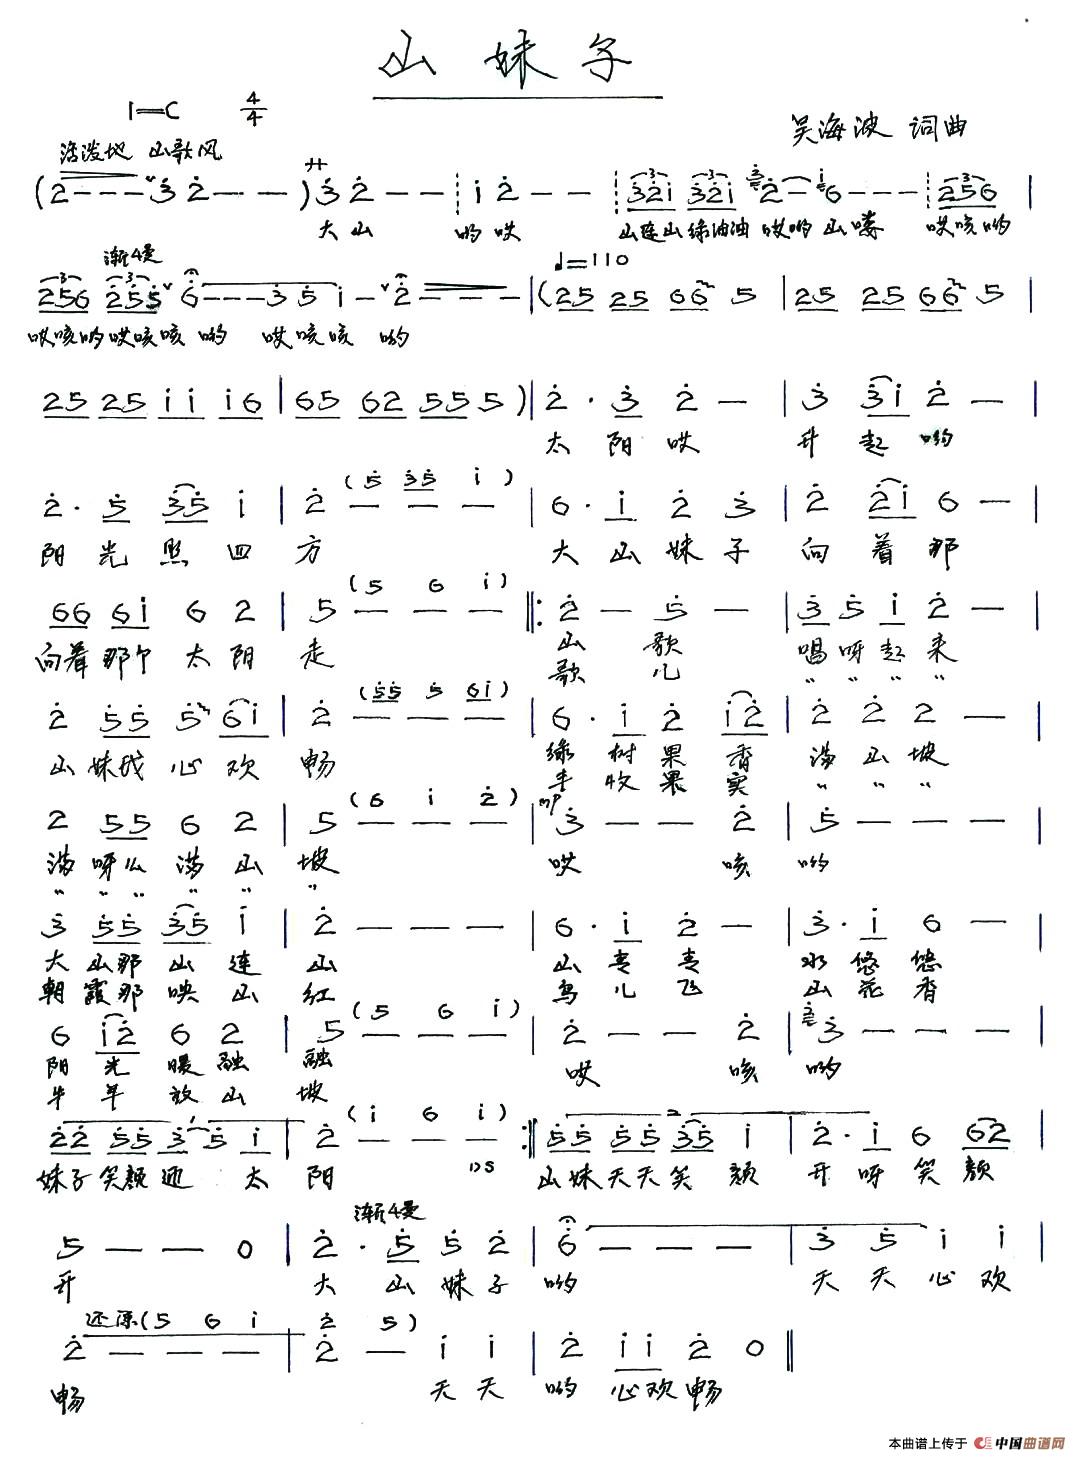 山妹子
1=C 4/4
吴海波 词曲
活泼地 山歌风
大山 哟哎 山连山绿油油哎哟山喽 哎咳哟
渐慢
♩=110
哎咳哟哎咳咳哟 哎咳咳哟
25 25 i i i6 | 65 62 555 ) | 2· 3 2 — | 3 3i 2 — |
太阳哎 升起哟
2· 5 35 i | 2 — — — (5 35 i) | 6· i 2 3 | 2 2i 6 — |
阳光照四方 大山妹子 向着那
66 6i 6 2 | 5 — — — (5 6 i) |: 2 — 5 — | 3 5 i 2 — |
向着那个太阳走 山歌 唱呀起来
歌儿 〃 〃 〃 〃
2 55 5 6i | 2 — — — (55 5 6i) | 6· i 2 i2 | 2 2 2 — |
山妹我心欢畅 绿树果香 满山坡
丰收果实 〃 〃 〃
2 55 6 2 | 5 — — — (6 i 2) | mp 3 — — 2 | 5 — — — |
满呀么满山坡 哎 咳 哟
〃 〃 〃 〃 〃 〃
3 55 35 i | 2 — — — | 6· i 2 — | 3· i 6 — |
大山那山连山 山青青 水悠悠
朝霞那映山红 鸟儿飞 山花香
6 i2 6 2 | 5 — — — (5 6 i) | 2 — — 2 | 3 — — — |
阳光暖融融 哎 咳 哟
牛羊放山坡
22 55 3 5 i | 2 — — — (i 6 i) :| 55 55 35 i | 2· i 6 62 |
妹子笑颜迎太阳 DS 山妹天天笑颜 开呀笑颜
渐慢
5 — — 0 | 2· 5 5 2 | 6 — — — | 3 5 i i |
开 大山妹子哟 天天心欢
还原(5 6 i 2 5)
2 — — — | 2 — i i | 2 i i 2 0 ‖
畅 天天哟 心欢畅
本曲谱上传于 中国曲谱网